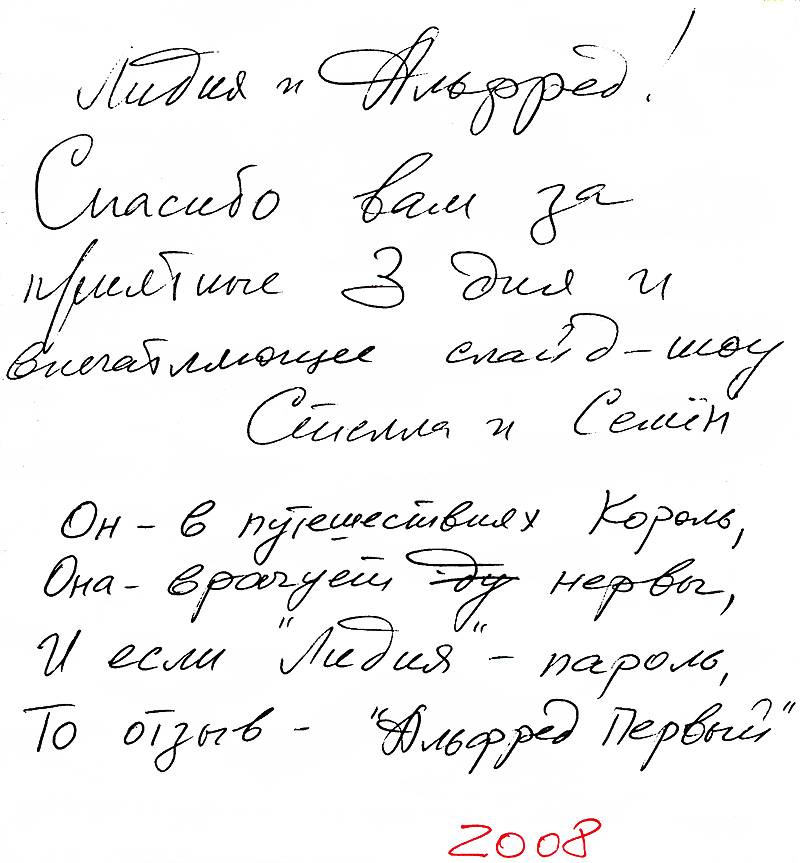 Лидия и Альфред!
Спасибо вам за
приятные 3 дня и
впечатляющее слайд-шоу
Стелла и Семён
Он - в путешествиях Король,
Она - врачует ду нервы,
И если "Лидия" - пароль,
То отзыв - "Альфред Первый"
2008